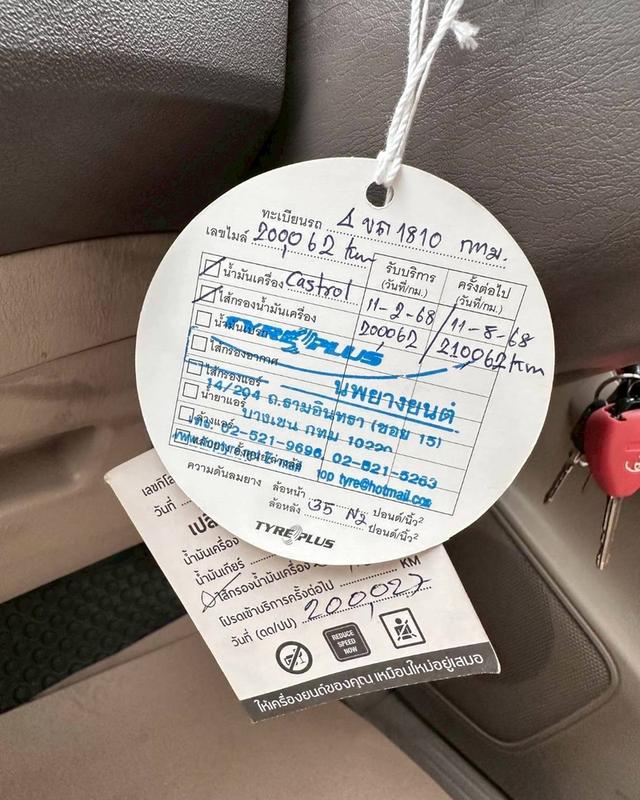 ทะเบียนรถ 1 ขด 1810 กทม.
เลขไมล์ 200,062 km
รับบริการ (วันที่/กม.) ครั้งต่อไป (วันที่/กม.)
น้ำมันเครื่อง Castrol 11-2-68 11-8-68
ไส้กรองน้ำมันเครื่อง 200062 210062 km
น้ำมันเบรก
TYRE PLUS
ไส้กรองอากาศ
นพยางยนต์
ไส้กรองแอร์
14/294 ถ.รามอินทรา (ซอย 15)
น้ำยาแอร์
บางเขน กทม 10220
ล้างแอร์
โทร. 02-521-9696, 02-521-5263
top tyre@hotmail.com
ความดันลมยาง ล้อหน้า ปอนด์/นิ้ว²
ล้อหลัง 35 N2 ปอนด์/นิ้ว²
TYREPLUS
วันที่
น้ำมันเครื่อง
น้ำมันเกียร์
ไส้กรองน้ำมันเครื่อง
โปรดเข้าบริการครั้งต่อไป KM
วันที่ (ดด/ปป) 200,027
REDUCE SPEED NOW
ให้เครื่องยนต์ของคุณ เหมือนใหม่อยู่เสมอ